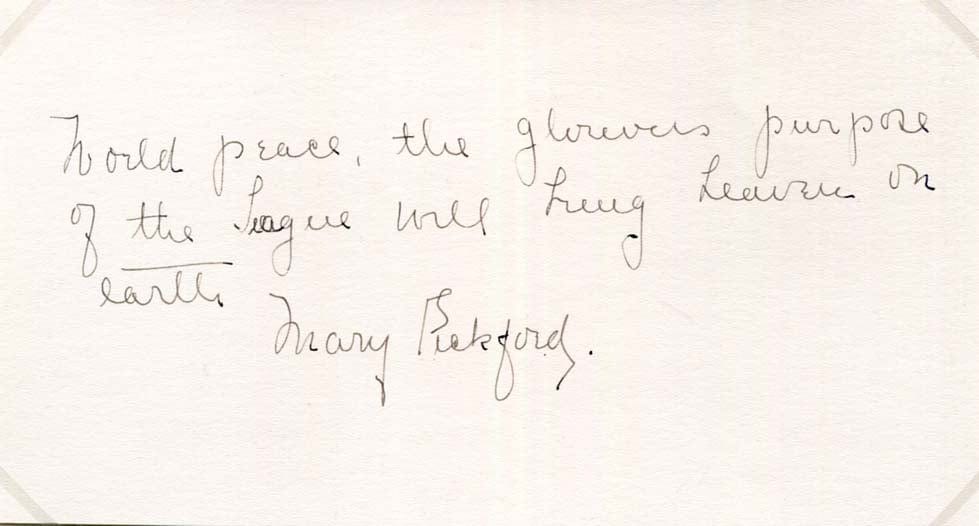 World peace, the glorious purpose
of the League will bring heaven on
earth.
Mary Pickford.